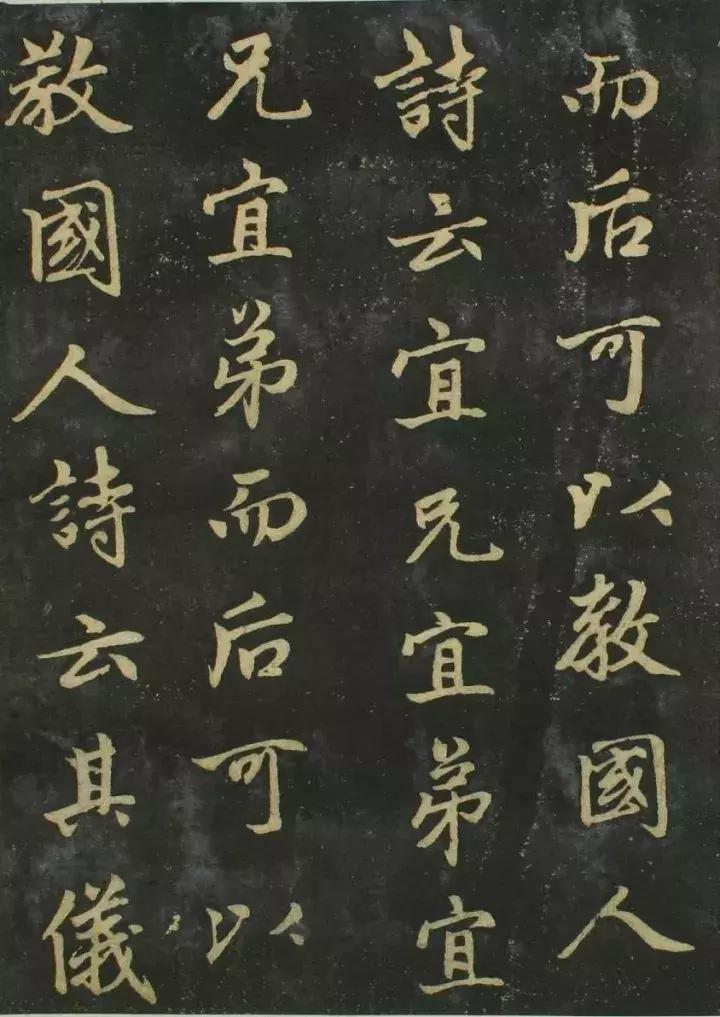 而后可以教國人
詩云宜兄宜弟宜
兄宜弟而后可以
教國人詩云其儀